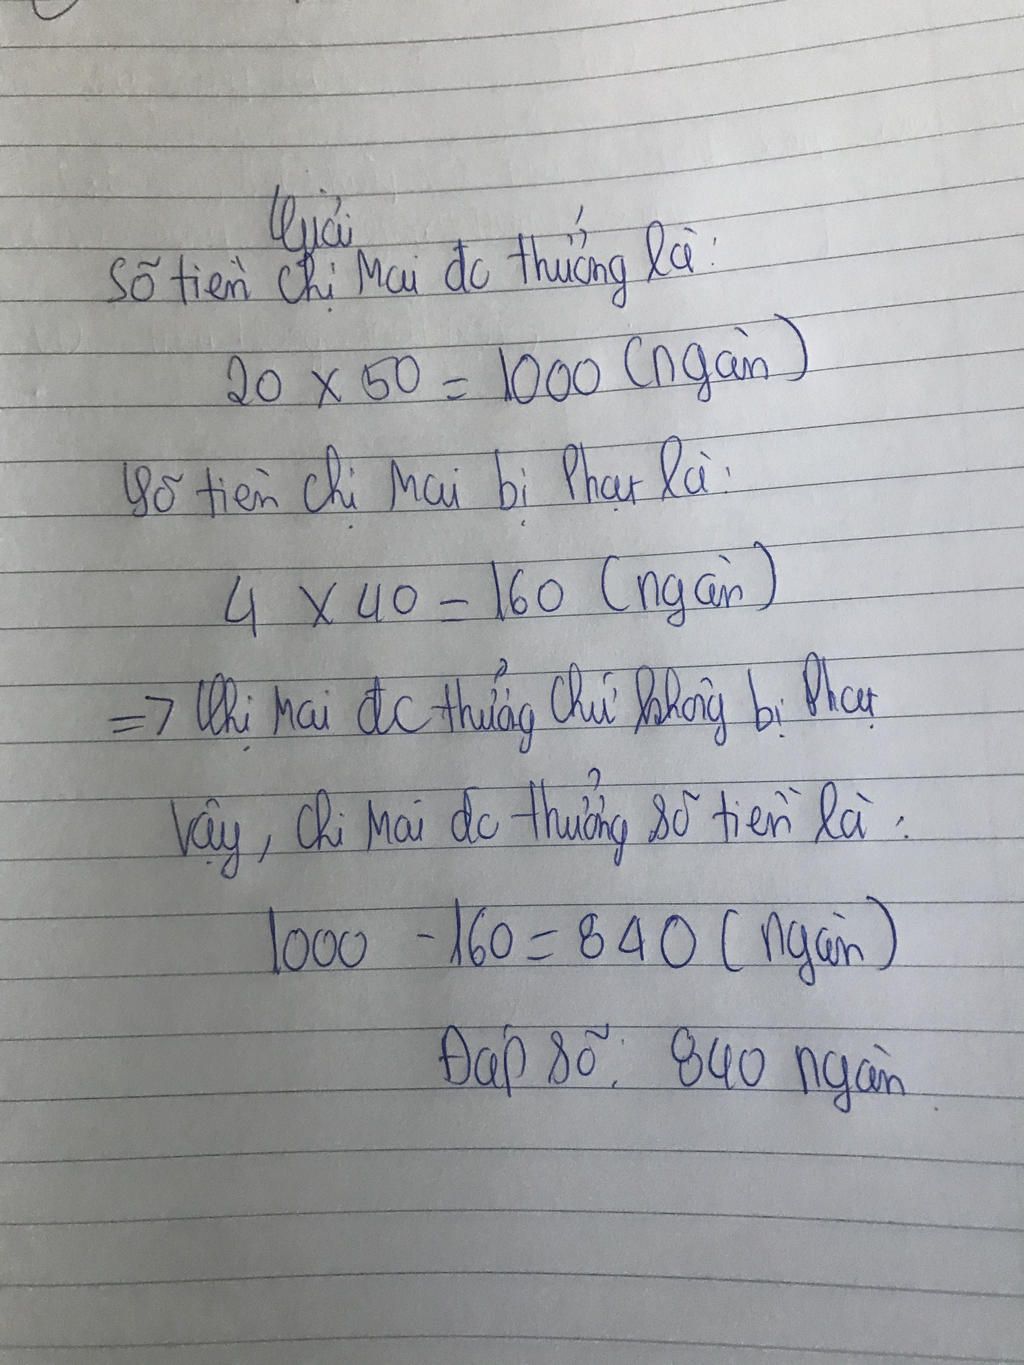 Giải
Số tiền chị Mai đc thưởng là:
20 x 50 = 1000 (ngàn)
Số tiền chị Mai bị phạt là:
4 x 40 = 160 (ngàn)
=> Chị Mai đc thưởng chứ không bị phạt
Vậy, chị Mai đc thưởng số tiền là:
1000 - 160 = 840 (ngàn)
Đáp số: 840 ngàn